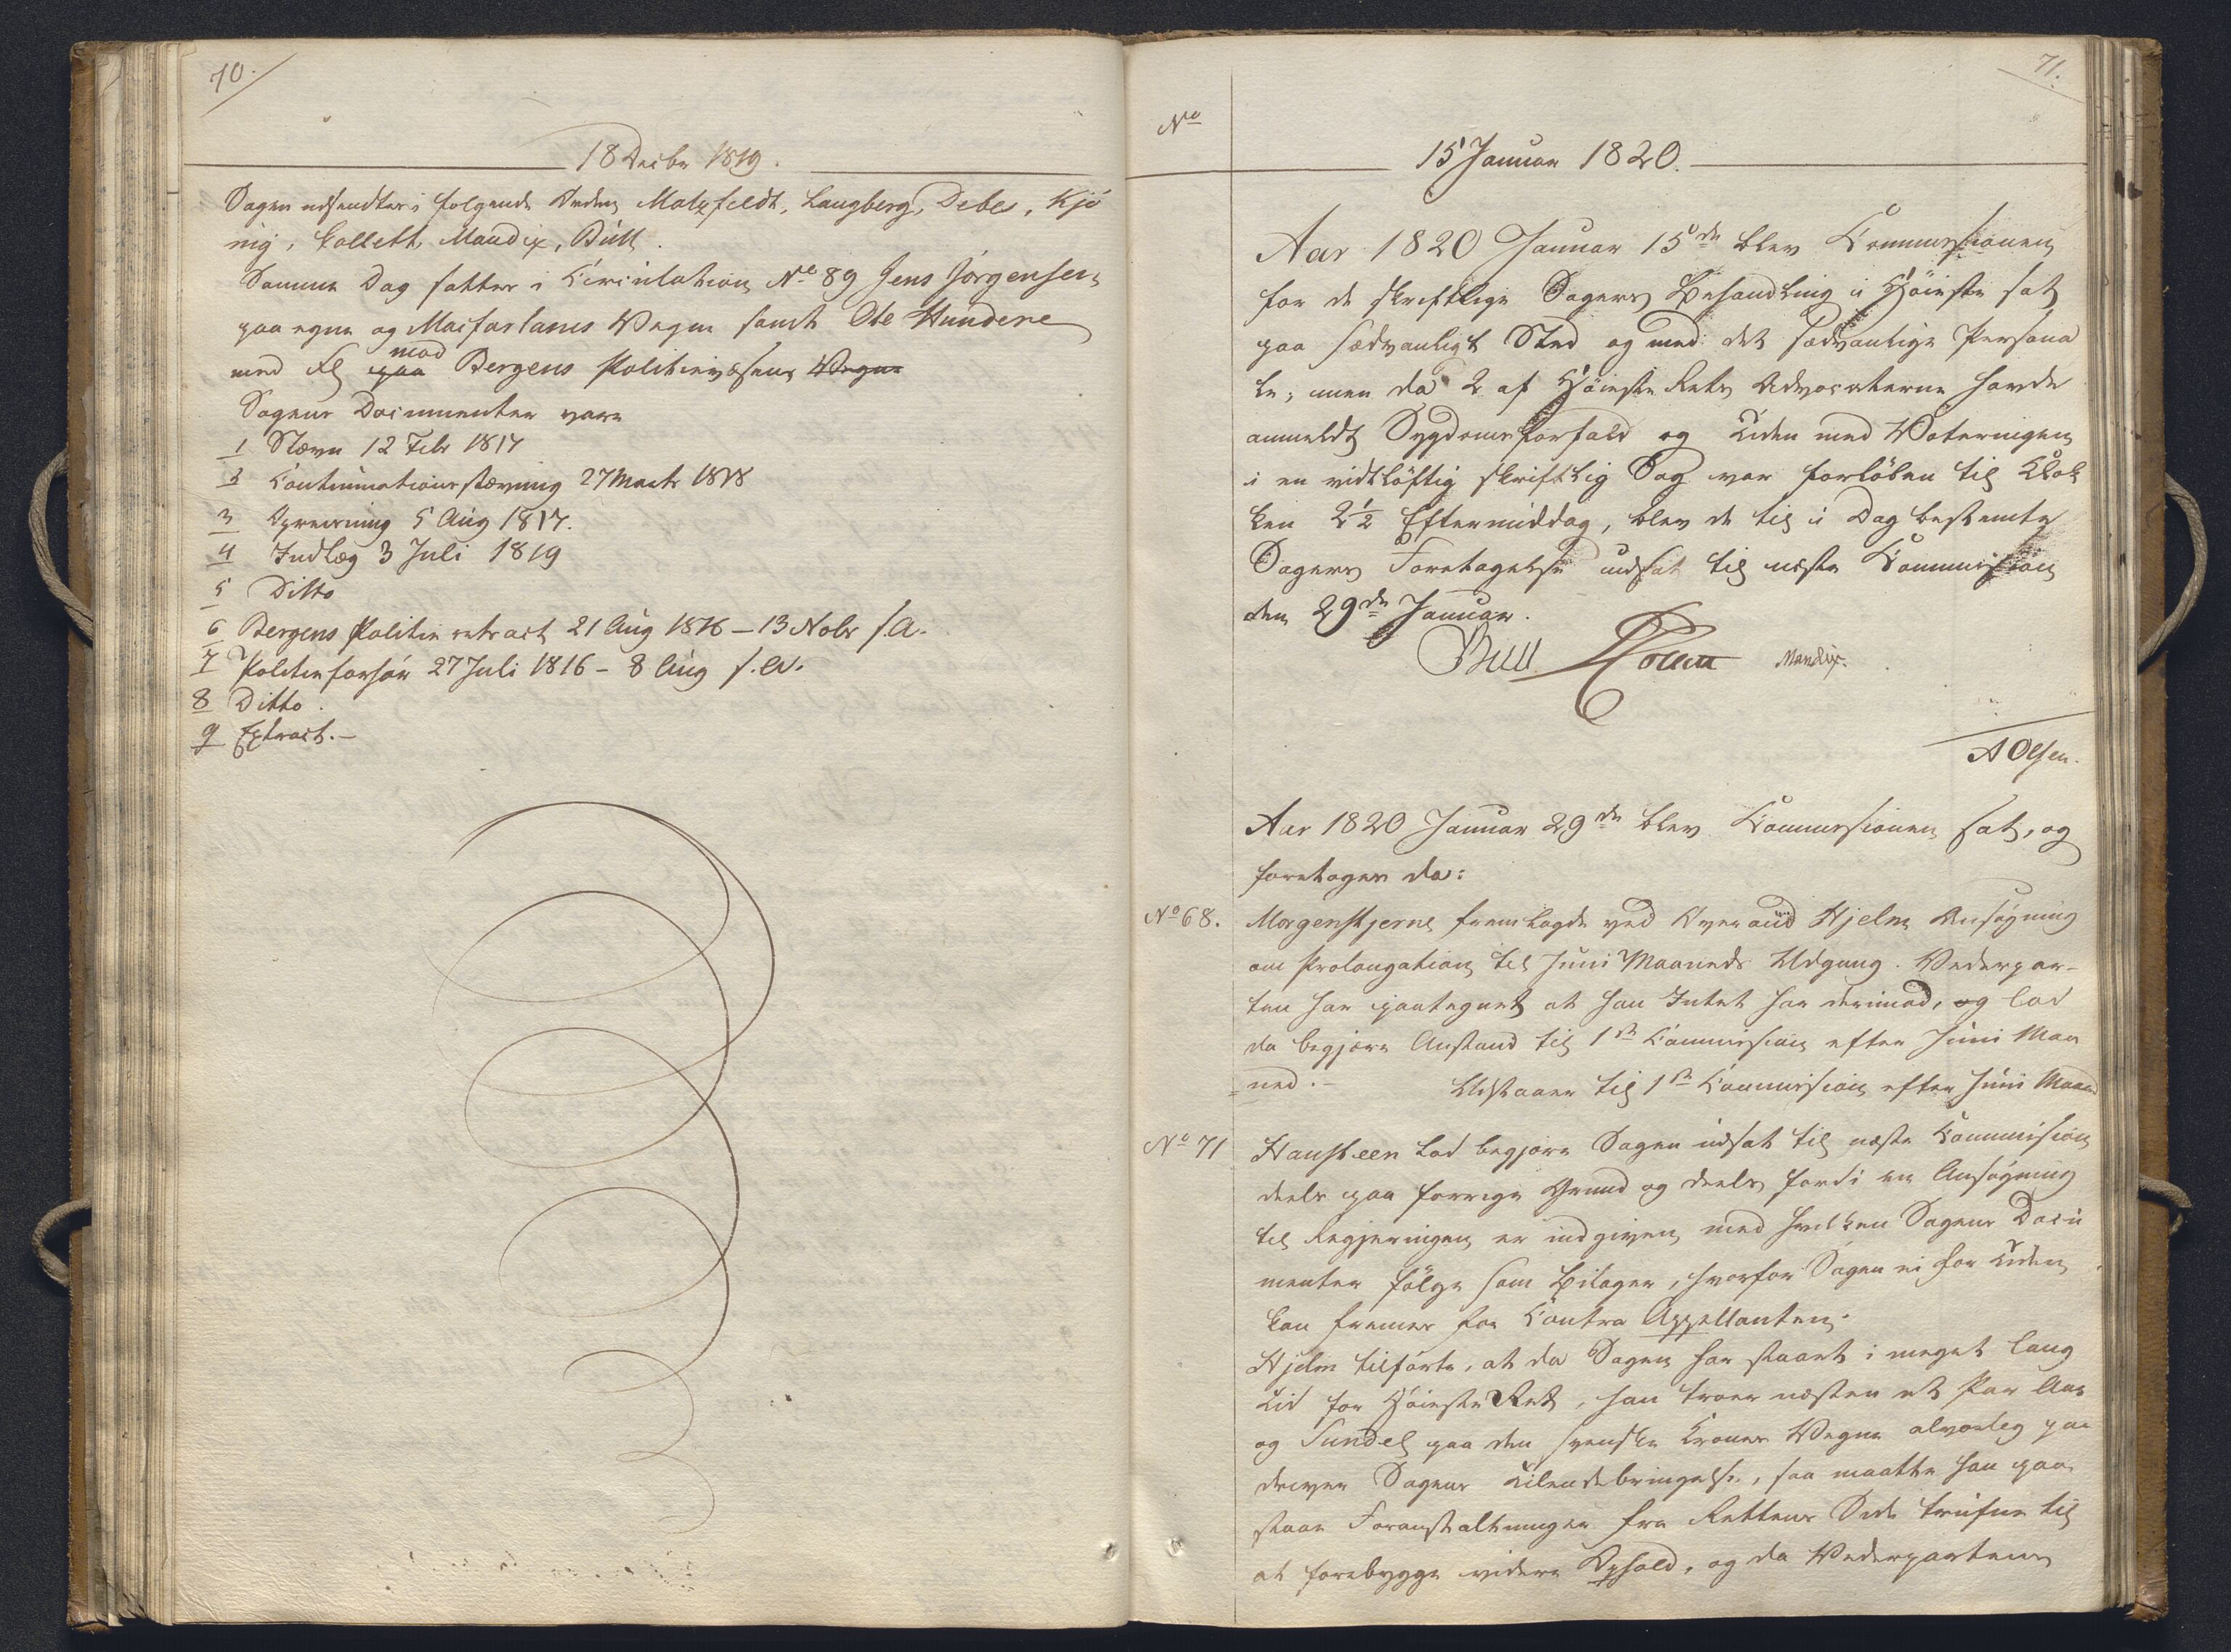 70.
18 Decbr 1819.
Sagen udsendtes i følgende Orden Motzfeldt, Langberg, Debes, Kjø
nig, Collett, Mandix, Bull.
Samme Dag sattes i Circulation No 89 Jens Jørgensen
paa egne og Macfarlanes Vegne samt Ole Hundere
med Fl paa mod Bergens Politievæsens Vegne
Sagens Documenter vare
1 Stævn 12 Febr 1817
2 Continuationsstævning 27 Marts 1818
3 Opreisning 5 Aug 1817.
4 Indlæg 3 Juli 1819
5 Ditto
6 Bergens Politie extract 21 Aug 1816 – 13 Nobr s.A.
7 Politieforhør 27 Juli 1816 – 8 Aug s.A.
8 Ditto.
9 Extract. –
71.
No
15 Januar 1820.
Aar 1820 Januar 15de blev Commissionen
for de skriftlige Sagers Behandling i Høieste sat
paa sædvanligt Sted og med det sædvanlige Persona
le; men da 2 af Høieste Rets Advocaterne havde
anmeldt Sygdomsforfald og Tiden med Voteringen
i en vidtløftig skriftlig Sag var forløben til Klok
ken 2½ Eftermiddag, blev de til i Dag bestemte
Sagers Foretagelse udsat til næste Commission
den 29de Januar.
Bull Mandix.
A Olsen.
Aar 1820 Januar 29de blev Commissionen sat, og
foretoges da:
No 68. Morgenstjerne fremlagde ved Hjelm Ansøgning
om Prolongation til Juni Maaneds Udgang. Vederpar-
ten har paategnet at han Intet har derimod, og lod
da begjære Anstand til 1ste Commission efter Juni Maa
ned. – Udstaaer til 1ste Commission efter Juni Maaned
No 71 Hansteen lod begjære Sagen udsat til næste Commission
deels paa forrige Grund og deels fordi en Ansøgning
til Regjeringen er indgiven, med hvilken Sagens Docu
menter følge som Bilager, hvorfor Sagen ei for Tiden
kan fremmes for Contra Appellanten.
Hjelm tilførte, at da Sagen har staaet i meget lang
Tid for Høieste Ret, han troer næsten et Par Aar
og Sundel paa den svenske Krones Vegne alvorlig paa
driver Sagens Tilendebringelse, saa maatte han paa
staae Foranstaltninger fra Rettens Side trufne til
at forebygge videre Ophold, og da Vederpartens